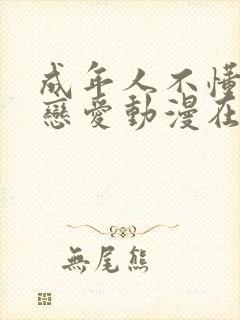 成年人不懂
戀愛動漫在
無尾熊